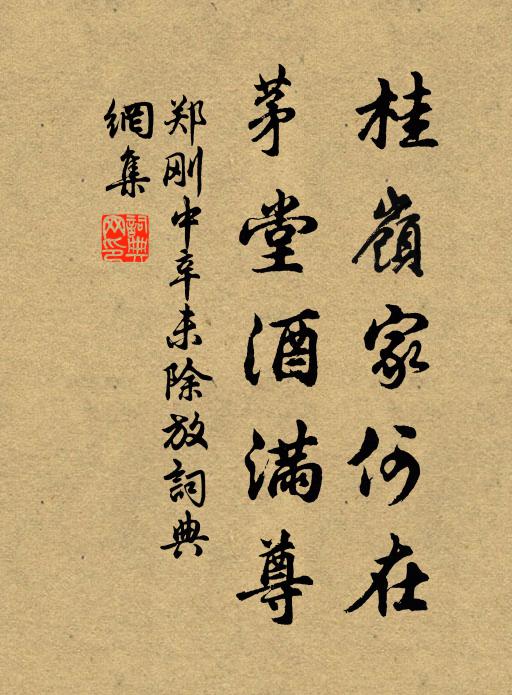 桂嶺家何在
茅堂酒滿尊
郑刚中辛未除放詞典
網集
詞典网印